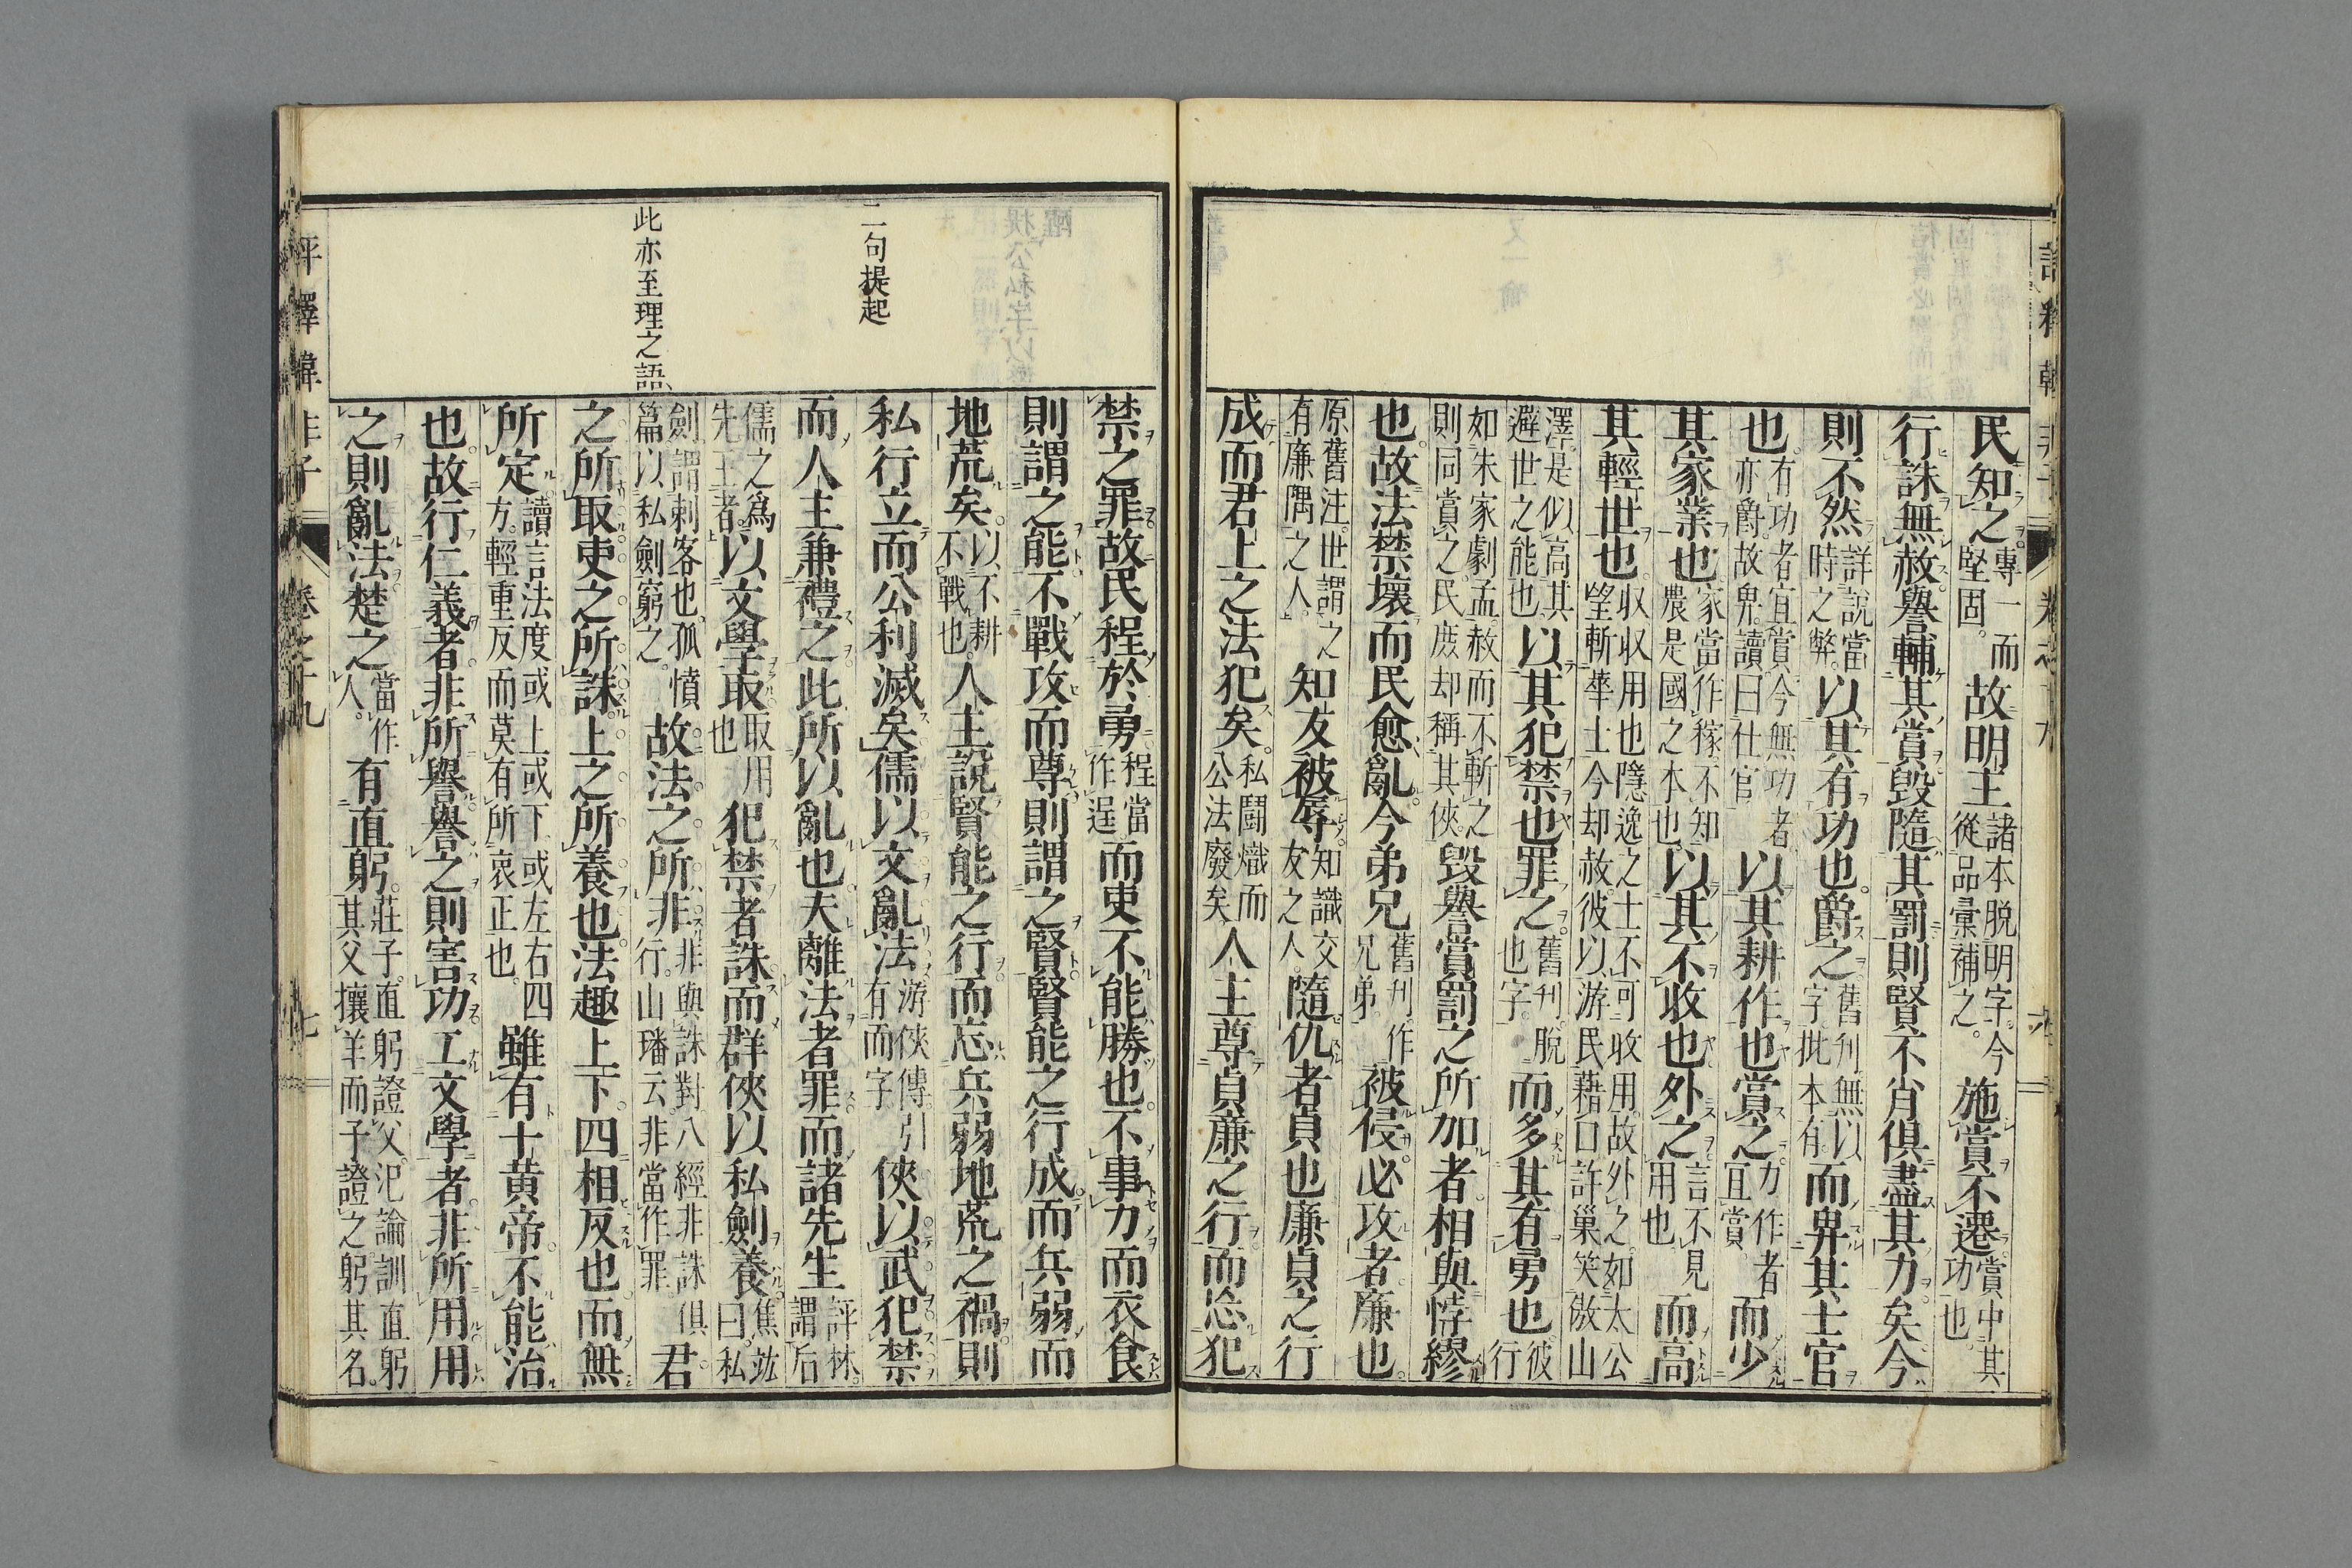 民知之專一而堅固故明主諸本脱明字今從品彙補之施賞不遷賞中其功也
行誅無赦譽輔其賞毀隨其罰則賢不肖俱盡其力矣今
則不然詳說當時之弊以其有功也爵之舊刋無以字批本有而卑其士官
也有功者宜賞今無功者亦爵故卑讀曰仕官以其耕作也賞之力作者宜賞而少
其家業也家當作稼不知農是國之本也以其不收也外之言不見用也而高
其輕世也収収用也隱逸之士不可收用故外之如太公望斬華士今却赦彼以游民藉口許巢笑傲山
澤是似高其避世之能也以其犯禁也罪之舊刋脱也字而多其有勇也彼行
如朱家劇孟赦而不斬之則同賞之民庶却稱其俠毀譽賞罰之所加者相與悖繆
也故法禁壞而民愈亂今弟兄舊刋作兄弟被侵必攻者廉也
原舊注世謂之有廉隅之人知友被辱知識交友之人隨仇者貞也廉貞之行
成而君上之法犯矣私鬪熾而公法廢矣人主尊貞廉之行而忘犯
禁之罪故民程於勇程當作逞而吏不能勝也不事力而衣食
則謂之能不戰攻而尊則謂之賢賢能之行成而兵弱而
地荒矣以不耕不戰也人主說賢能之行而忘兵弱地荒之禍則
私行立而公利滅矣儒以文亂法游俠傳引有而字俠以武犯禁
而人主兼禮之此所以亂也夫離法者罪而諸先生評林謂后
儒之爲先王者以文學取取用也犯禁者誅而群俠以私劍養焦竑曰私
劍謂刺客也孤憤篇以私劍窮之故法之所非非與誅對八經非誅俱行山璠云非當作罪君
之所取吏之所誅上之所養也法趣上下四相反也而無
所定讀言法度或上或下或左右四方輕重反而莫有所衷正也雖有十黄帝不能治
也故行仁義者非所譽譽之則害功工文學者非所用用
之則亂法楚之當作人有直躬莊子直躬證父氾論訓直躬其父攘羊而子證之躬其名
二句提起
此亦至理之語
評釋韓非子
卷之十九
七